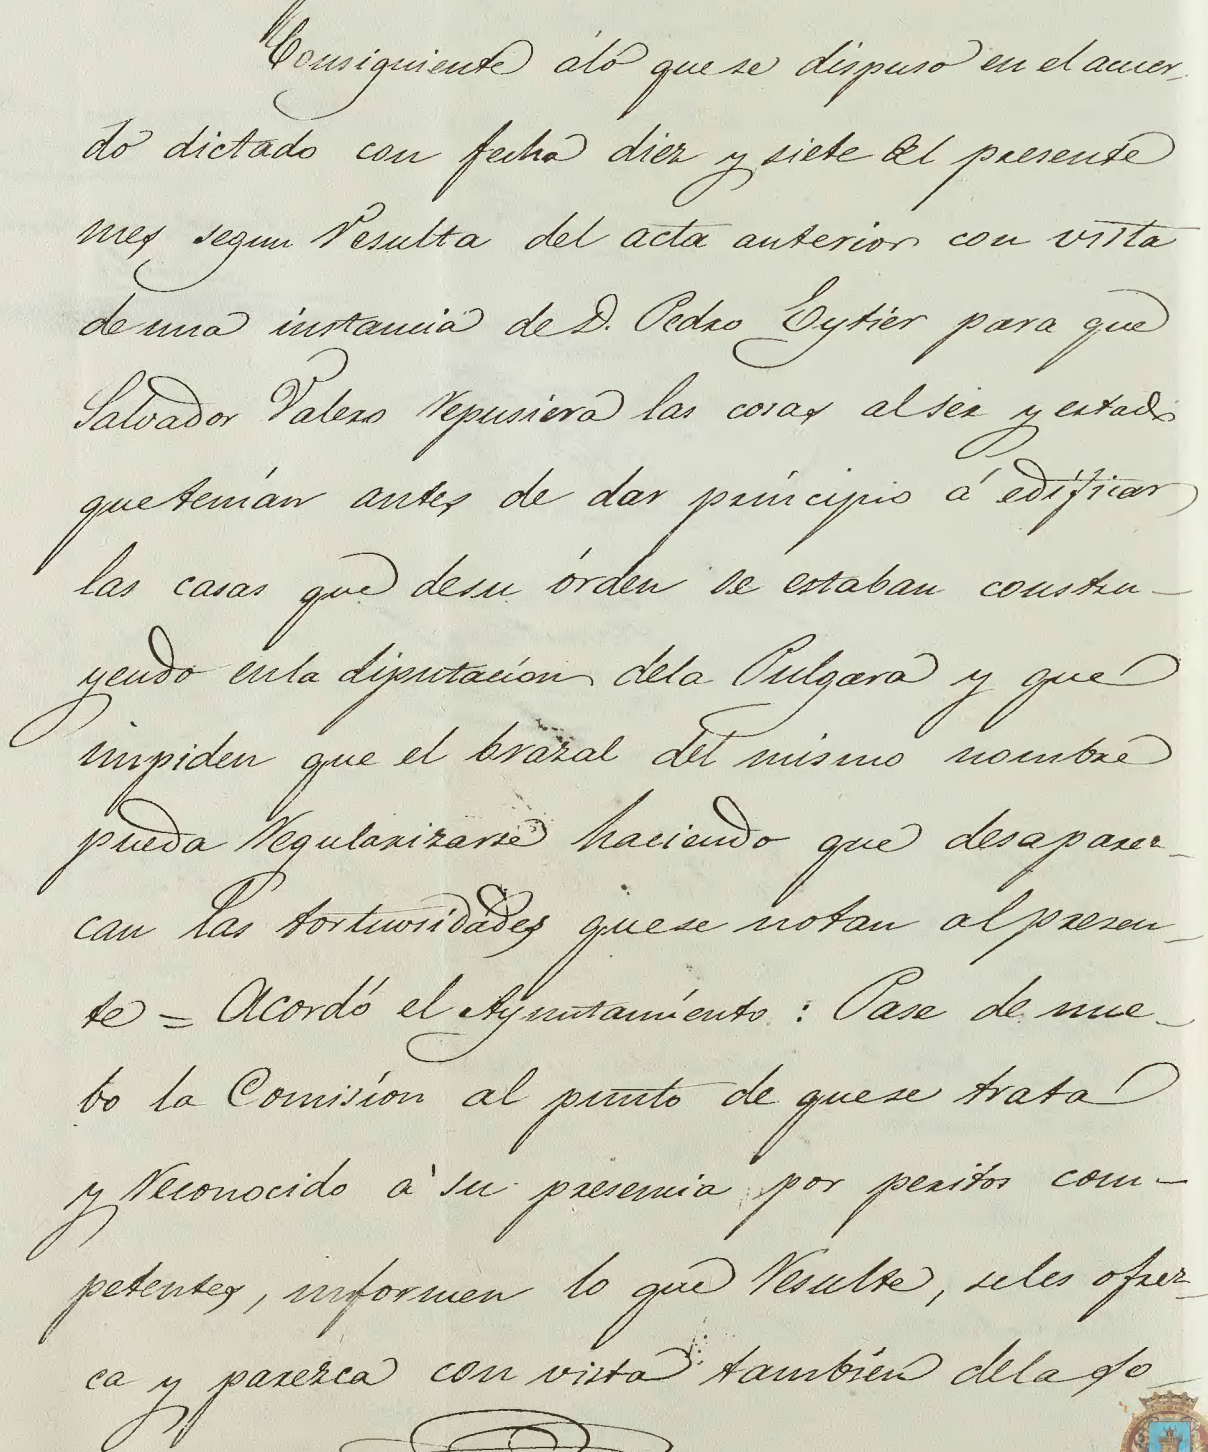 Consiguiente áló que se dispuso en el acuer-
do dictado con fecha diez y siete del presente
mes, segun resulta del acta anterior con vista
de una instancia de D. Pedro Eytier para que
Salvador Valero repusiera las cosas al ser y estado
que tenían antes de dar principio á edificar
las casas que desu órden se estaban constru-
yendo enla diputacion dela Pulgara y que
impiden que el brazal del mismo nombre
pueda regularizarse haciendo que desaparez-
can las tortuosidades quese notan al presen-
te = Acordó el Ayuntamiento: Pase de nue-
bo la Comisión al punto de quese trata
y reconocido á su presencia por peritos com-
petentes, informen lo que resulte, seles ofrez-
ca y parezca con vista también dela so-